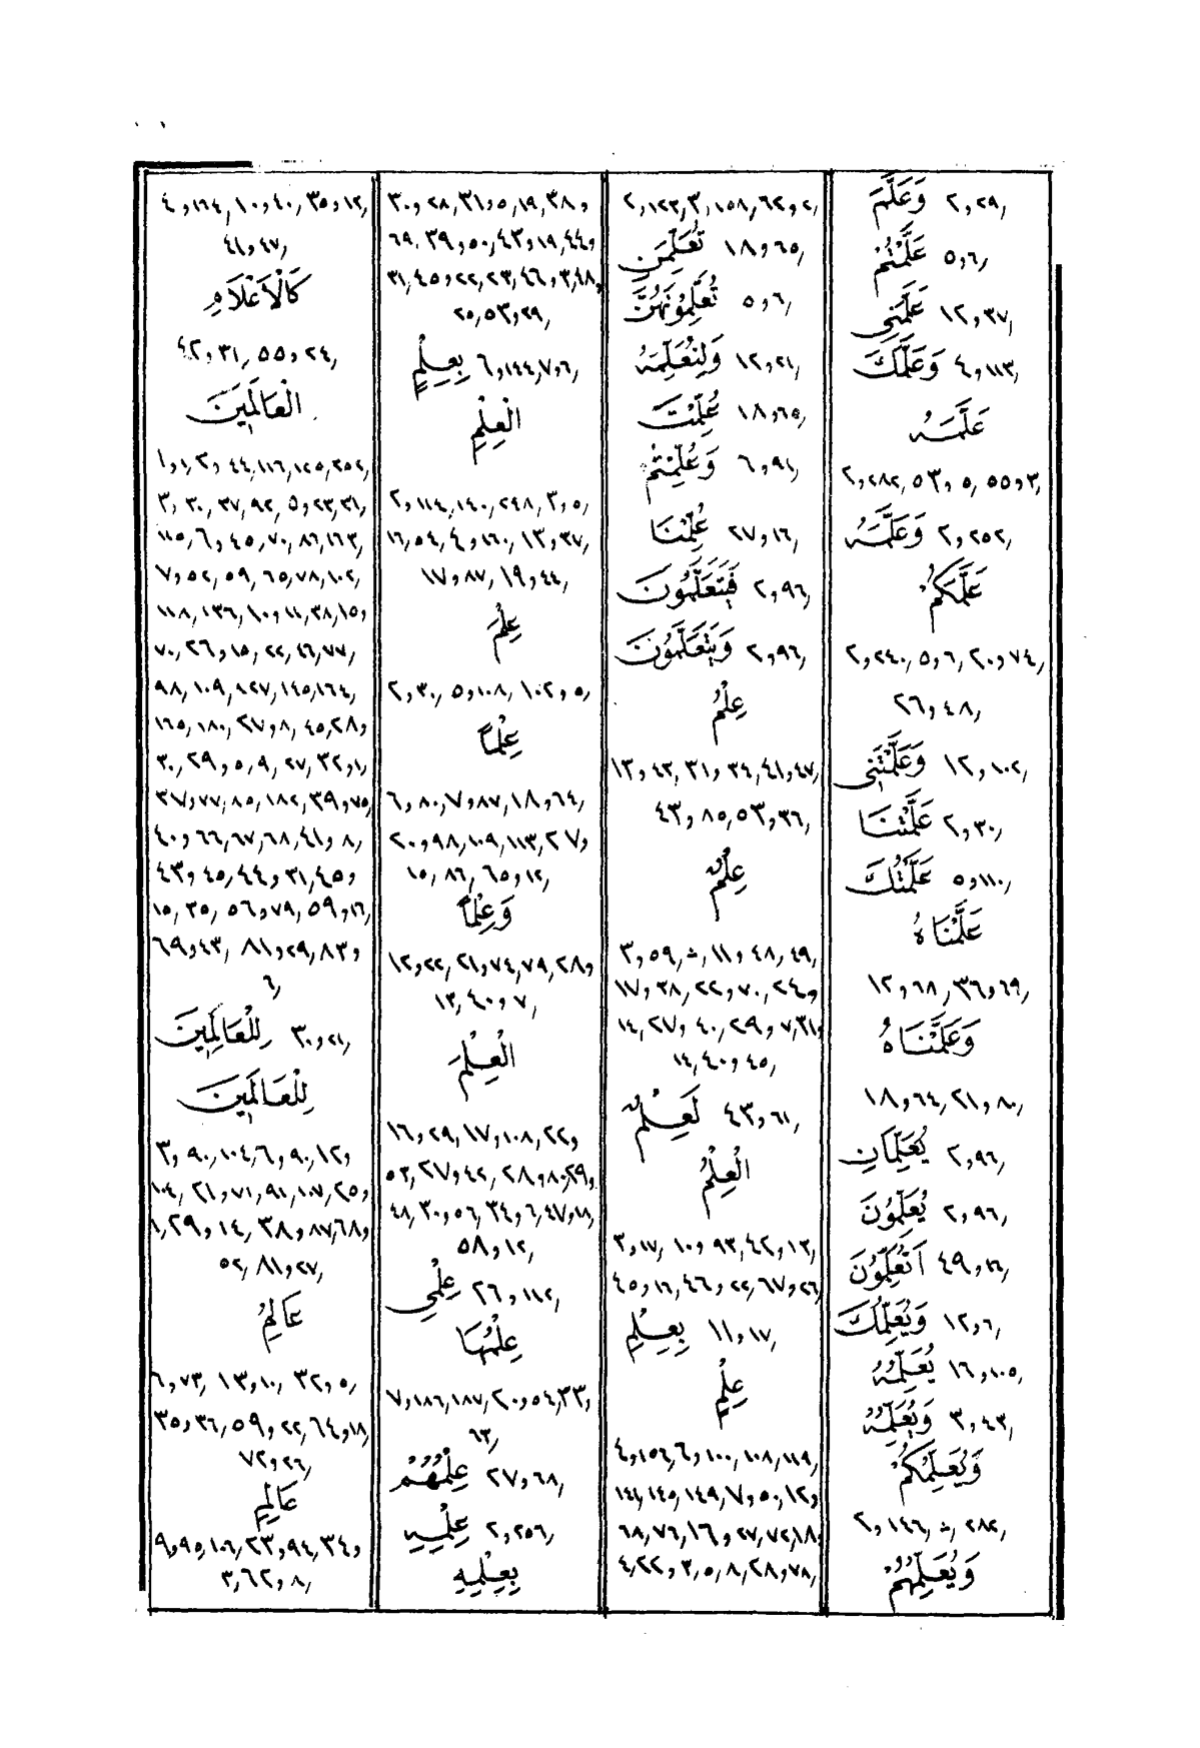 وَعَلَّمَ ٢,٢٩
عَلَّمْتُمْ ٥,٦
عَلَّمَنِي ١٢,٣٧
وَعَلَّمَكَ ٤,١١٣
عَلَّمَهُ
٢,٢٨٢, ٥٣,٥, ٥٥,٣
وَعَلَّمَهُ ٢,٢٥٢
عَلَّمَكُمُ
٢,٢٤٠, ٥,٦, ٢٠,٧٤
٢٦,٤٨
وَعَلَّمْتَنِي ١٢,١٠٢
عَلَّمْتَنَا ٢,٣٠
عَلَّمْتُكَ ٥,١١٠
عَلَّمْنَاهُ
١٢,٦٨, ٣٦,٦٩
وَعَلَّمْنَاهُ
١٨,٦٤, ٢١,٨٠
يُعَلِّمَانِ ٢,٩٦
يُعَلِّمُونَ ٢,٩٦
أَتُعَلِّمُونَ ٤٩,١٦
وَيُعَلِّمُكَ ١٢,٦
يُعَلِّمُهُ ١٦,١٠٥
وَيُعَلِّمُهُ ٣,٤٣
وَيُعَلِّمُكُمُ
٢,١٤٦, ٢٨٢
وَيُعَلِّمُهُمُ
٢,١٢٣, ٣,١٥٨, ٦٢,٢
تُعَلِّمَنِ ١٨,٦٥
تُعَلِّمُونَهُنَّ ٥,٦
وَلِنُعَلِّمَهُ ١٢,٢١
عُلِّمْتَ ١٨,٦٥
وَعُلِّمْتُمْ ٦,٩١
عُلِّمْنَا ٢٧,١٦
فَيَتَعَلَّمُونَ ٢,٩٦
وَيَتَعَلَّمُونَ ٢,٩٦
عِلْمُ
١٣,٤٣, ٣١,٣٤, ٤١,٤٧
٤٣,٨٥, ٥٣,٣٦
عِلْمٌ
٣,٥٩, ١١,٤٨, ٤٩
١٧,٣٨, ٢٢,٧٠, ٢٤
١٤, ٢٧,٤٠, ٢٩,٧, ٣١
١٤, ٤٠,٤٥
لَعِلْمٌ ٤٣,٦١
الْعِلْمُ
٣,١٧, ١٠,٩٣, ٤٢,١٣
٤٥,١٦, ٤٦,٢٢, ٦٧,٢٦
بِعِلْمِ ١١,١٧
عِلْمٍ
٤,١٥٦, ٦,١٠٠, ١٠٨, ١١٩
١٤٤, ١٤٥, ١٤٩, ٧,٥٠, ١٢
٦٨, ٧٦, ١٦,٢٧, ٧٢, ١٨
٤,٢٢, ٣,٥, ٨, ٢٨,٧٨
٣٠,٢٨, ٣١,٥, ١٩, ٣٨
٦٩, ٣٩,٥٠, ٤٣,١٩, ٤٤
٣١, ٤٥,٢٢, ٢٣, ٤٦,٣, ٤٨
٢٥, ٥٣,٢٩
بِعِلْمٍ ٦,١٤٤, ٧,٦
الْعِلْمِ
٢,١١٤, ١٤٠, ٢٤٨, ٣,٥
١٦, ٥٤, ٤,١٦٠, ١٣,٣٧
١٧,٨٧, ١٩,٤٤
عِلْمَ
٢,٣٠, ٥,١٠٨, ١٠٢,٥
عِلْمًا
٦,٨٠, ٧,٨٧, ١٨,٦٤
٢٠,٩٨, ١٠٩, ١١٣, ٢٧
١٥, ٨٦, ٦٥,١٢
وَعِلْمًا
١٢,٢٢, ٢١,٧٤, ٧٩, ٢٨
١٣, ٤٠,٧
الْعِلْمَ
١٦,٢٩, ١٧,١٠٨, ٢٢
٥٣, ٢٧,٤٢, ٢٨,٨٠, ٢٩
٤٨, ٣٠,٥٦, ٣٤,٦, ٤٧,١٨
٥٨,١٢
عِلْمِي ٢٦,١١٢
عِلْمُهَا
٧,١٨٦, ١٨٧, ٢٠,٥٤, ٣٣
٦٣
عِلْمُهُمْ ٢٧,٦٨
عِلْمِهِ ٢,٢٥٦
بِعِلْمِهِ
٤,١٦٤, ١٠,٤٠, ٣٥,١٢
٤١,٤٧
كَالْأَعْلَامِ
٤٢,٣١, ٥٥,٢٤
الْعَالَمِينَ
١,١, ٢,٤٤, ١١٦, ١٢٥, ٢٥٢
٣,٣٠, ٣٧, ٩٢, ٥,٢٣, ٣١
١١٥, ٦,٤٥, ٧٠, ٨٦, ١٦٣
٧,٥٢, ٥٩, ٦٥, ٧٨, ١٠٢
١١٨, ١٣٦, ١٠,١١, ٣٨, ١٥
٧٠, ٢٦,١٥, ٢٢, ٤٦, ٧٧
٩٨, ١٠٩, ١٢٧, ١٤٥, ١٦٤
١٦٥, ١٨٠, ٢٧,٨, ٤٥, ٢٨
٣٠, ٢٩,٥, ٩, ٢٧, ٣٢,١
٣٧,٧٧, ٨٥, ١٨٢, ٣٩,٧٥
٤٠,٦٦, ٦٧, ٦٨, ٤١,٨
٤٣,٤٥, ٤٤,٣١, ٤٥
١٥, ٣٥, ٥٦,٧٩, ٥٩,١٦
٦٩,٤٣, ٨١,٢٩, ٨٣
٦
لِلْعَالِمِينَ ٣٠,٢١
لِلْعَالَمِينَ
٣,٩٠, ١٠٤, ٦,٩٠, ١٢
١٠٤, ٢١,٧١, ٩١, ١٠٧, ٢٥
١, ٢٩,١٤, ٣٨,٨٧, ٦٨
٥٢, ٨١,٢٧
عَالِمُ
٦,٧٣, ١٣,١٠, ٣٢,٥
٣٥,٣٦, ٥٩,٢٢, ٦٤,١٨
٧٢,٢٦
عَالِمِ
٩,٩٥, ١٠٦, ٢٣,٩٤, ٣٤
٣, ٦٢,٨